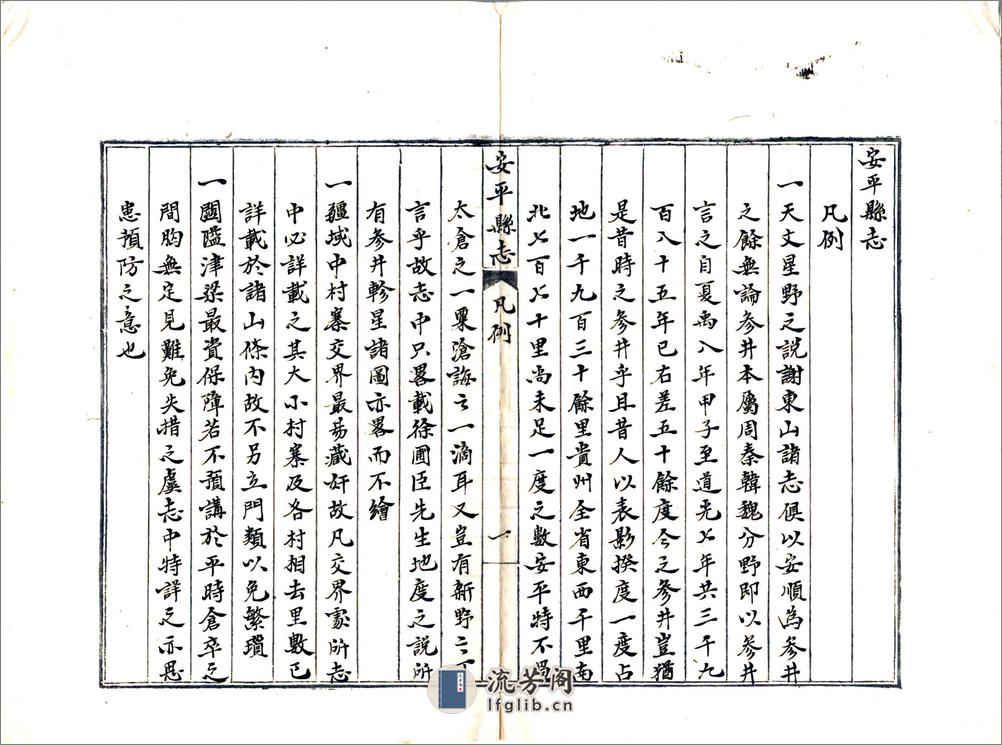 安平縣志
凡例
一天文星野之說謝東山諸志俱以安順為參井
之餘無論參井本屬周秦韓魏分野即以參井
言之自夏禹八年甲子至道光七年共三千九
百八十五年已右差五十餘度今之參井豈猶
是昔時之參井乎且昔人以表影揆度一度占
地一千九百三十餘里貴州全省東西千里南
北七百七十里尚未足一度之數安平特不過
安平縣志
凡例
一
太倉之一粟滄海之一滴耳又豈有新野之可
言乎故志中只畧載徐圃臣先生地度之說所
有參井軫星諸圖亦畧而不繪
一疆域中村寨交界最易藏奸故凡交界處所志
中必詳載之其大小村寨及各村相去里數已
詳載於諸山條內故不另立門類以免繁瑣
一關隘津梁最資保障若不預講於平時倉卒之
間胸無定見難免失措之虞志中特詳之亦思
患預防之意也
流芳阁
lfglib.cn